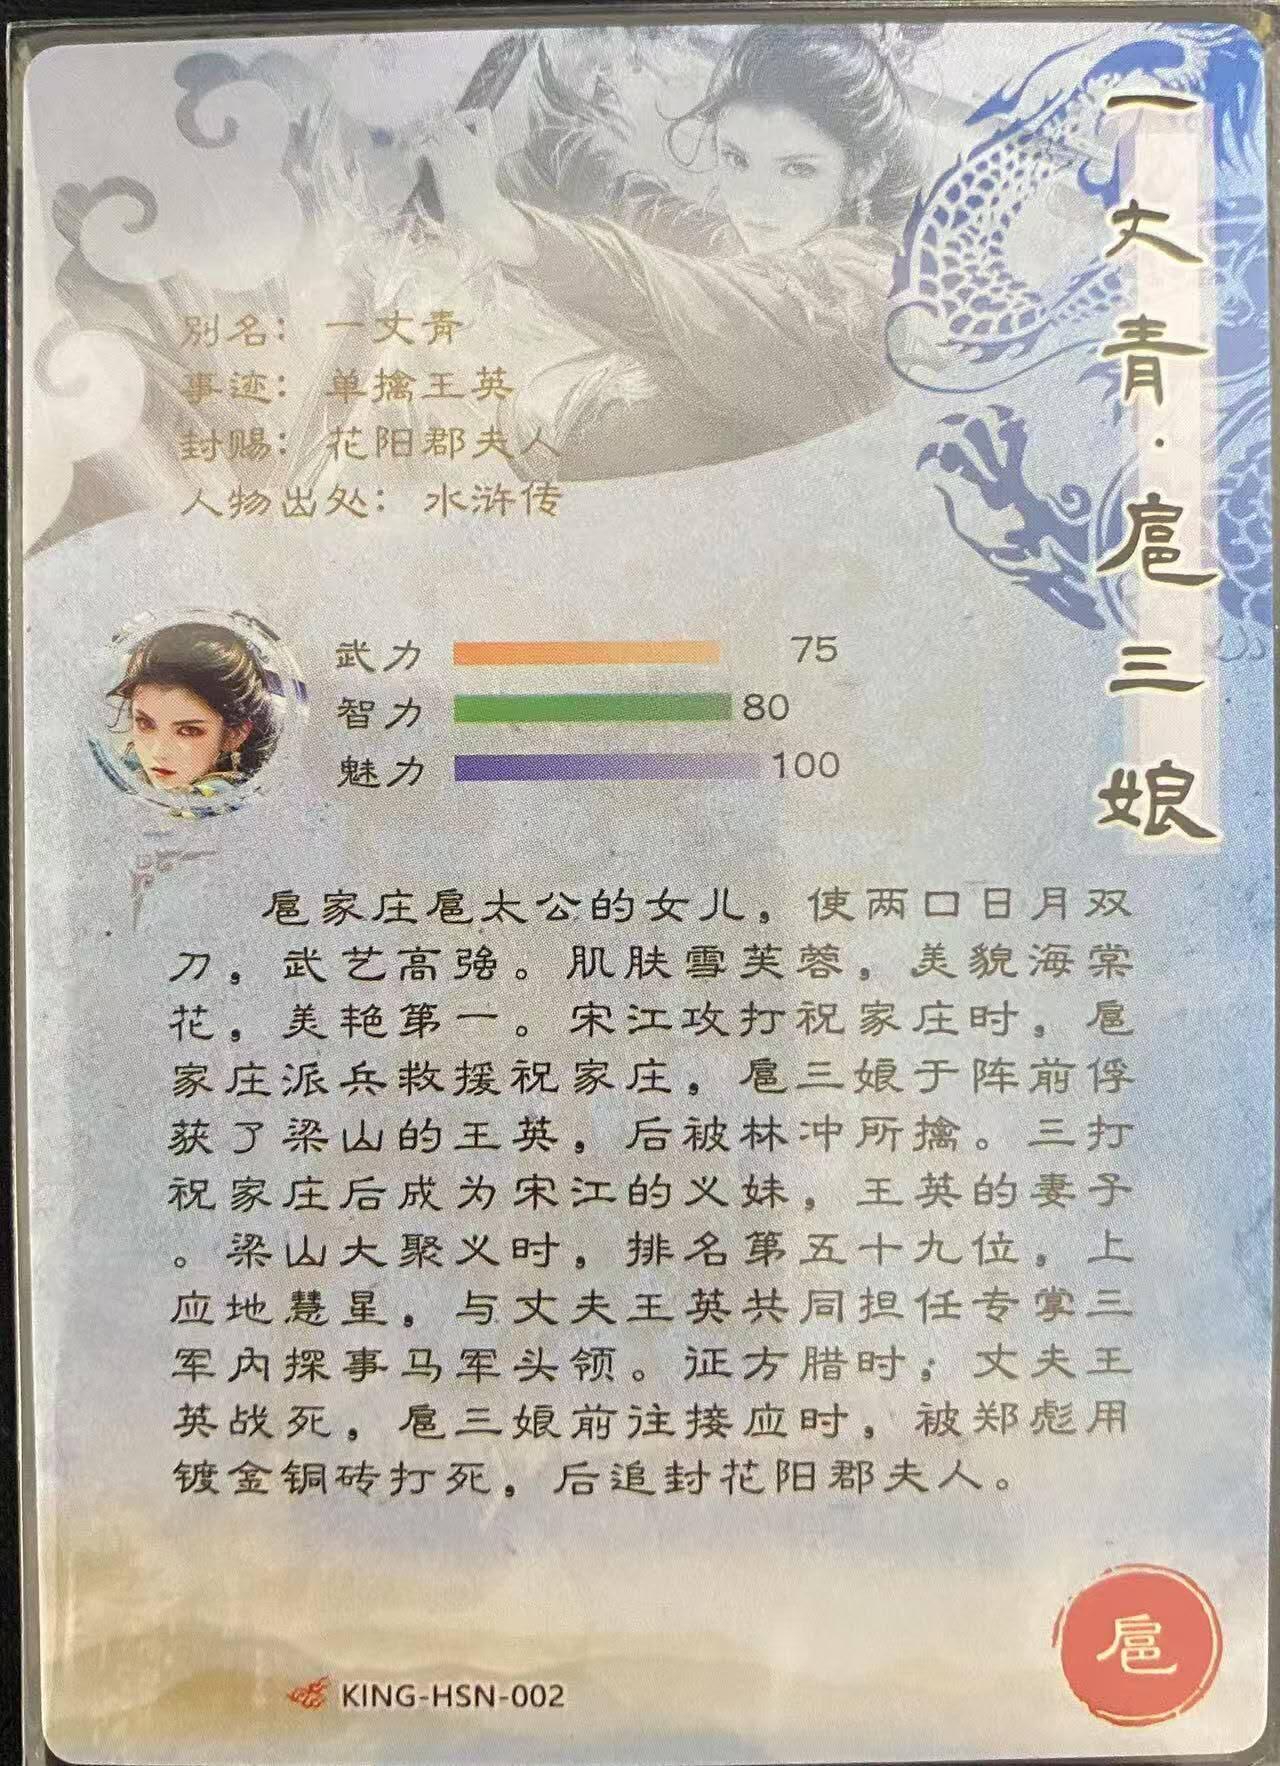 一丈青·扈三娘
别名：一丈青
事迹：单擒王英
封赐：花阳郡夫人
人物出处：水浒传
武力 75
智力 80
魅力 100
扈家庄扈太公的女儿，使两口日月双
刀，武艺高强。肌肤雪芙蓉，美貌海棠
花，美艳第一。宋江攻打祝家庄时，扈
家庄派兵救援祝家庄，扈三娘于阵前俘
获了梁山的王英，后被林冲所擒。三打
祝家庄后成为宋江的义妹，王英的妻子
。梁山大聚义时，排名第五十九位，上
应地慧星，与丈夫王英共同担任专掌三
军内探事马军头领。证方腊时，丈夫王
英战死，扈三娘前往接应时，被郑彪用
镀金铜砖打死，后追封花阳郡夫人。
扈
KING-HSN-002